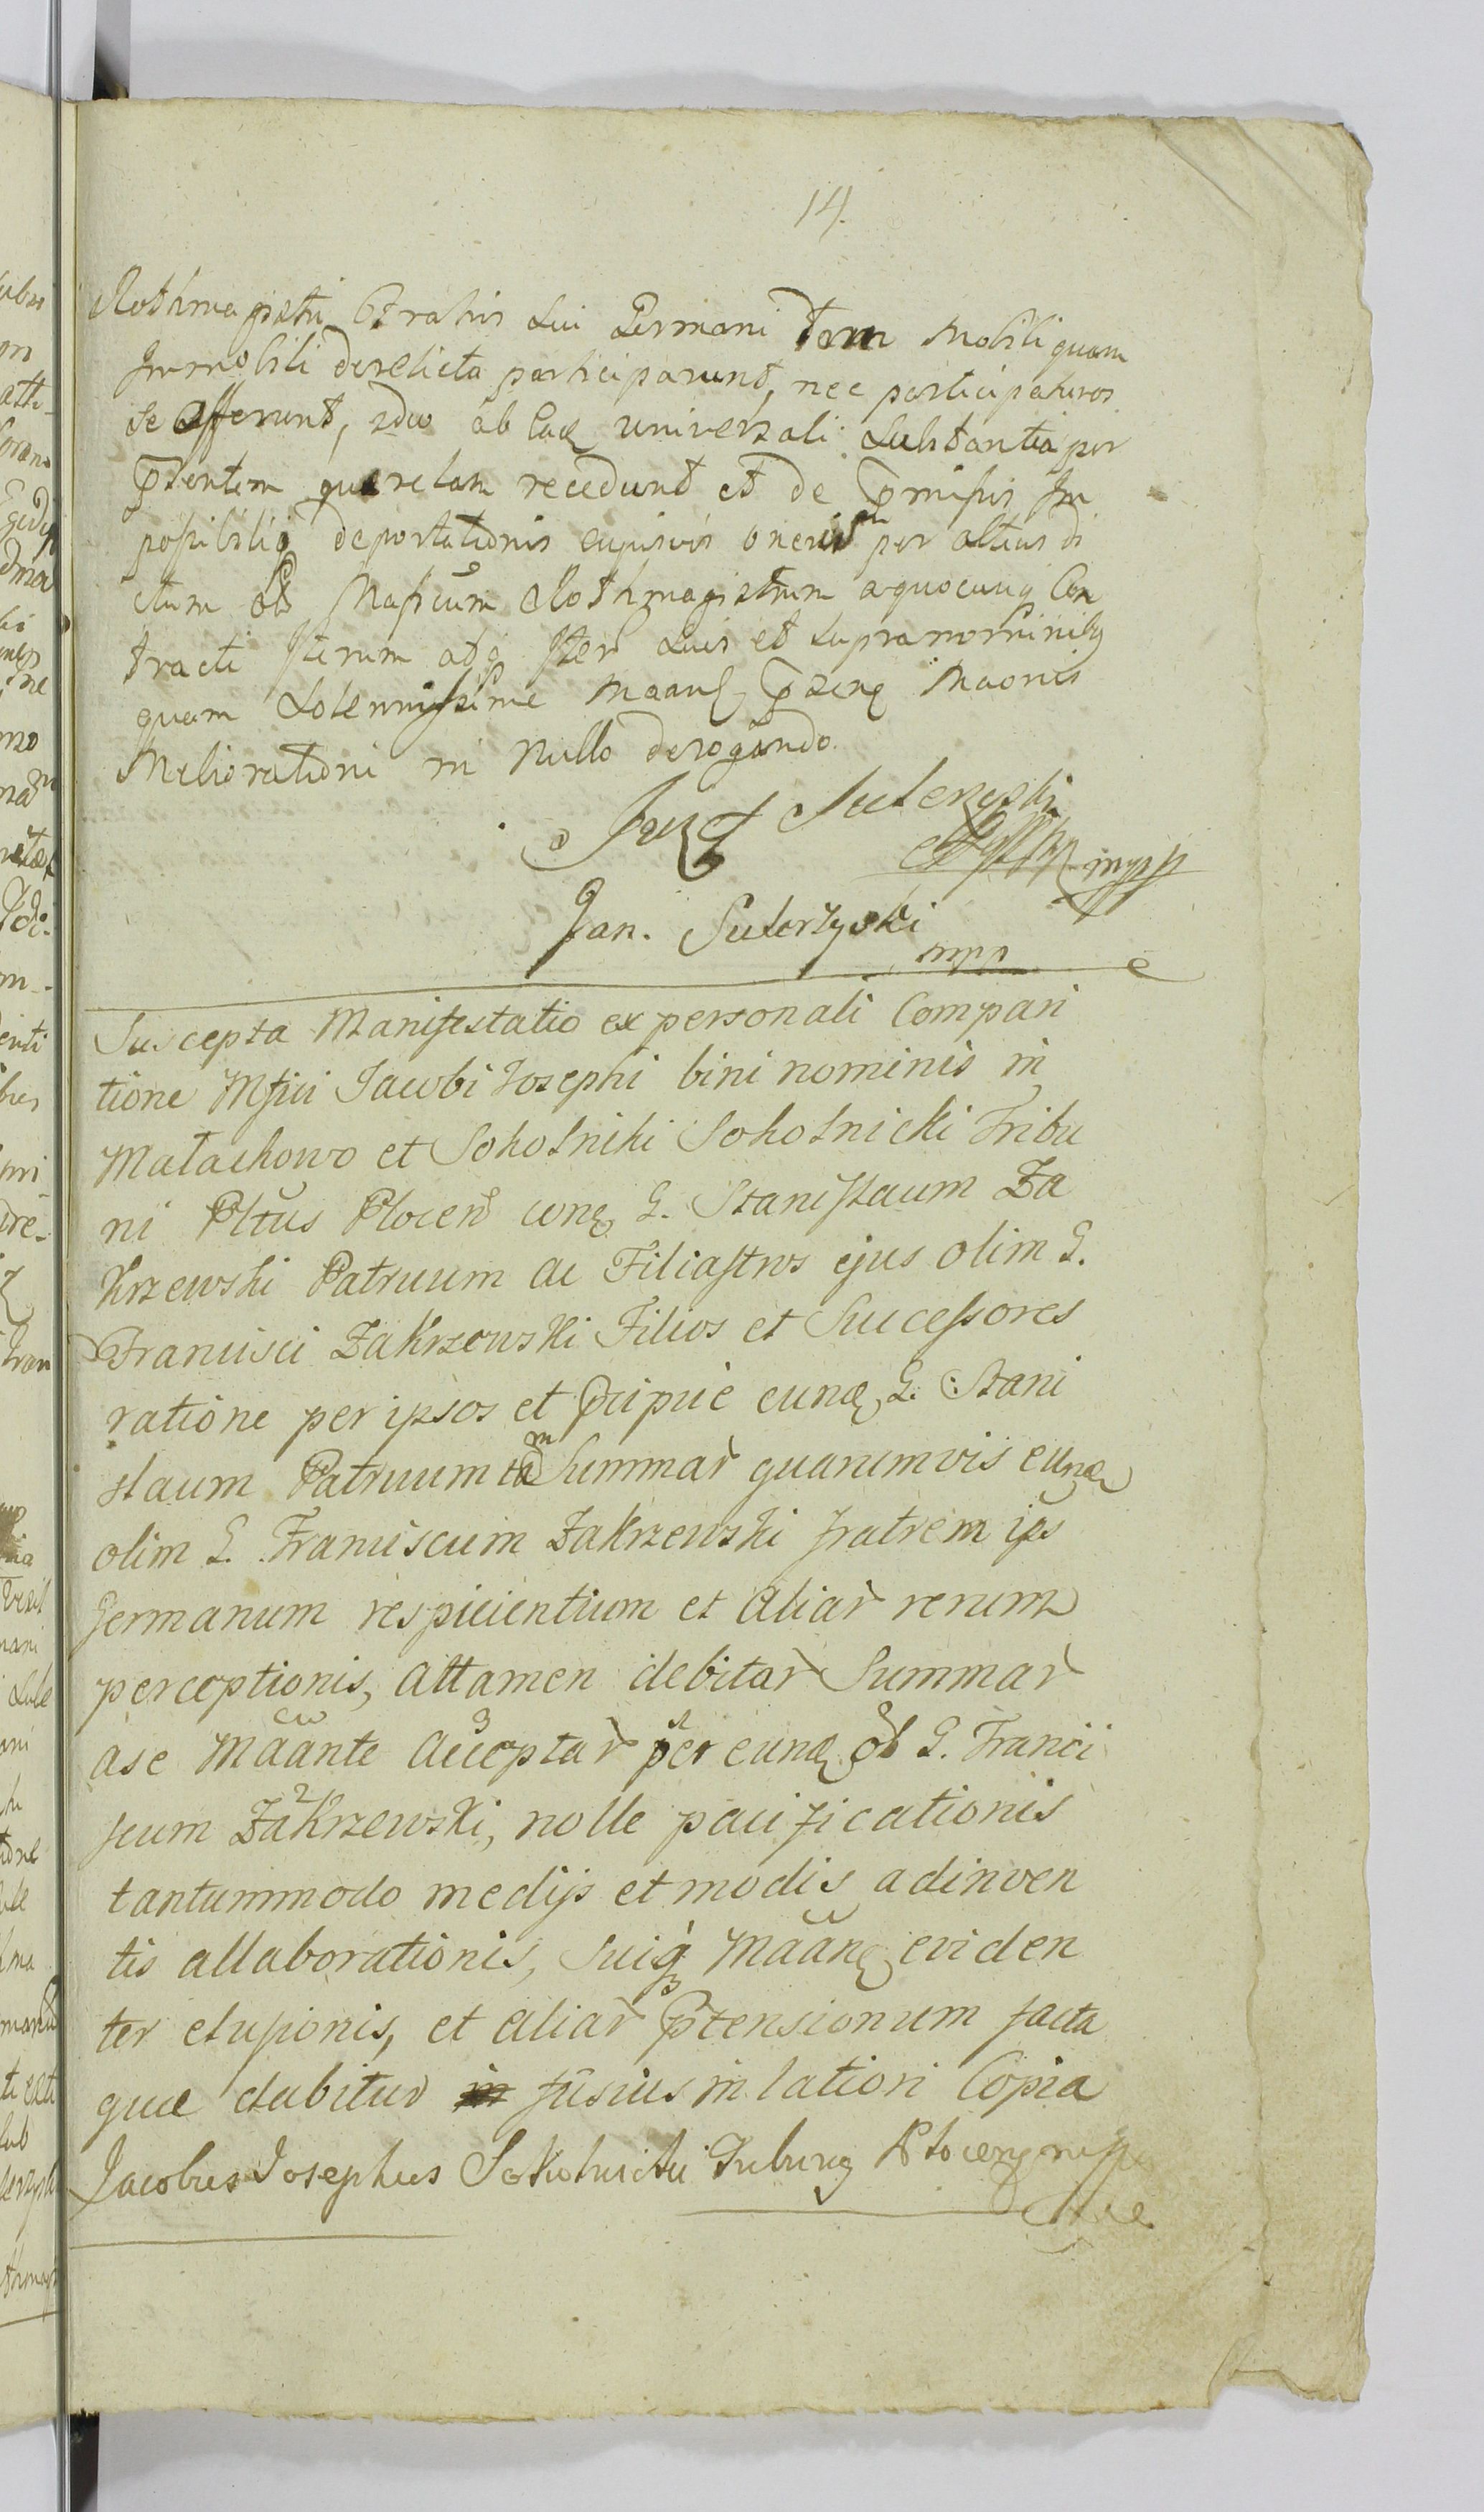 14.
Rothmagistri Fratris sui Germani tam Mobili quam
Immobili derelicta participarunt, nec participaturos
se asserunt, ideo ab Eadē universali Substantia per
pñtentem querelam recedunt et de pmissis Im
possibilis deportationis cujusvis oneris per altius di
ctum ol. Mgficum Rothmagistrum a quocunq Con
tracti Iterum atq Iterū suis et supra nominibq
quam solennissime Maanĩ pzenę Maonis
Meliorationi in Nullo derogando.
Juzef Suterzyski
mpp
Jan. Suterzyski
mpp
Suscepta Manifestatio ex personali Compari
tione Mfici Jacobi Josephi bini nominis in
Małachowo et Sokolniki Sokolnicki Tribu
ni Pltus Plocens conę G. Stanislaum Za
krzewski Patruum ac Filiastros ejus olim G.
Francisci Zakrzewski Filios et Successores
ratione per ipsos et pcipue eunď G. Stani
slaum Patruum tam Summar quarumvis eundę
olim G. Franciscum Zakrzewski fratrem ips
Germanum respicientium et aliar rerum
perceptionis, attamen debitar Summar
a se Maante acceptar per eund ol G. Franci
scum Zakrzewski, nolle pacificationis
tantummodo medijs et modis adinven
tis allaborationis, suiq Maanę eviden
ter elusionis, et aliar ptensionum facta
quæ dabitur fusius in latiori Copia
Jacobus Josephus Sokolnicki Tribunq Plocens mpp